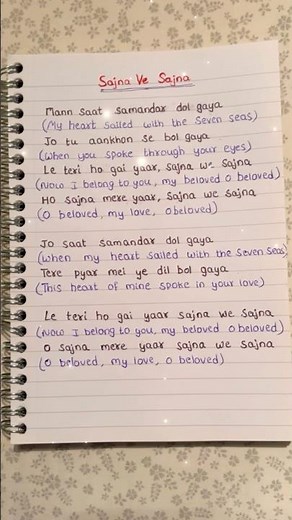 Sajna Ve Sajna
Mann saat samandar dol gaya
(My heart sailed with the seven seas)
Jo tu aankhon se bol gaya
(When you spoke through your eyes)
Le teri ho gai yaar, sajna we sajna
(Now I belong to you, my beloved o beloved)
Ho sajna mere yaar, sajna we sajna
(O beloved, my love, o beloved)
Jo saat samandar dol gaya
(When my heart sailed with the seven seas)
Tere pyar mei ye dil bol gaya
(This heart of mine spoke in your love)
Le teri ho gai yaar sajna we sajna
(Now I belong to you, my beloved o beloved)
O sajna mere yaar sajna we sajna
(O beloved, my love, o beloved)